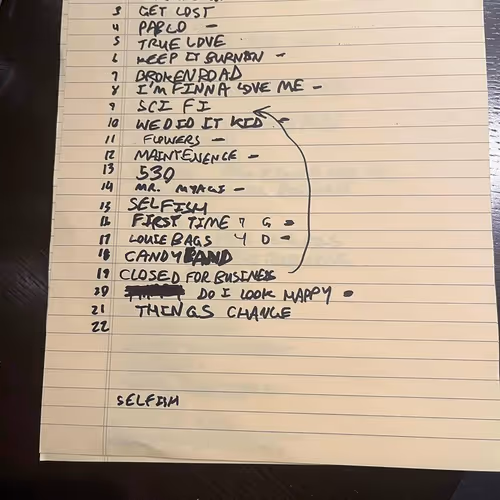 3 GET LOST
4 PABLO -
5 TRUE LOVE
6 KEEP IT BURNIN -
7 BROKEN ROAD
8 I'M FINNA LOVE ME -
9 SCI FI
10 WE DID IT KID -
11 FLOWERS -
12 MAINTENENCE -
13 530
14 MR. MYAGI -
15 SELFISH
16 FIRST TIME 7 G -
17 LOUIE BAGS 4 D -
18 CANDYLAND
19 CLOSED FOR BUSINESS
20 DO I LOOK HAPPY
21 THINGS CHANGE
22
SELFISH